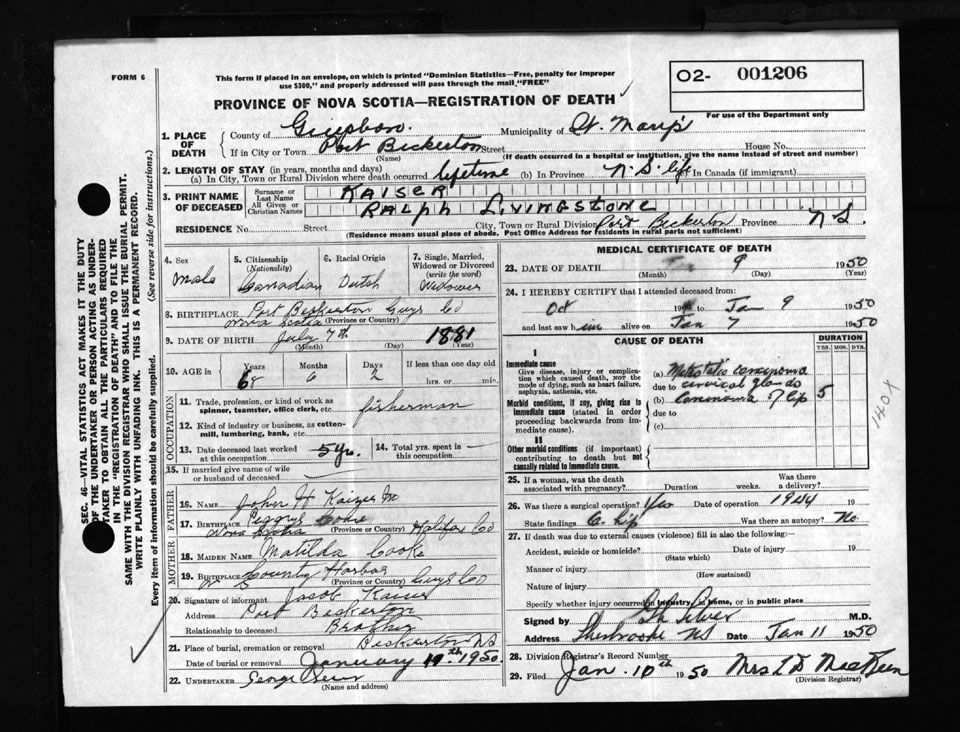 FORM 6
This form if placed in an envelope, on which is printed "Dominion Statistics—Free, penalty for improper
use $300," and properly addressed will pass through the mail "FREE"
O2- 001206
For use of the Department only
PROVINCE OF NOVA SCOTIA—REGISTRATION OF DEATH
1. PLACE OF DEATH
County of Guysboro. Municipality of St. Mary's
If in City or Town Port Bickerton Street House No.
(Name) (If death occurred in a hospital or institution, give the name instead of street and number)
2. LENGTH OF STAY (in years, months and days)
(a) In City, Town or Rural Division where death occurred lifetime (b) In Province N.S. life In Canada (if immigrant)
3. PRINT NAME OF DECEASED
Surname or Last Name KAISER
All Given or Christian Names RALPH LIVINGSTONE
RESIDENCE No. Street City, Town or Rural Division Port Bickerton Province N S.
(Residence means usual place of abode. Post Office Address for residents in rural parts not sufficient)
4. Sex Male
5. Citizenship (Nationality) Canadian
6. Racial Origin Dutch
7. Single, Married, Widowed or Divorced (write the word) Widower
8. BIRTHPLACE Port Bickerton Guys Co
Nova Scotia (Province or Country)
9. DATE OF BIRTH July 7th 1881
(Month) (Day) (Year)
10. AGE in Years 68 Months 6 Days 2 If less than one day old
hrs. or min.
OCCUPATION
11. Trade, profession, or kind of work as
spinner, teamster, office clerk, etc. fisherman
12. Kind of industry or business, as cotton-
mill, lumbering, bank, etc.
13. Date deceased last worked
at this occupation 5 yr.
14. Total yrs. spent in
this occupation
15. If married give name of wife
or husband of deceased
FATHER
16. NAME John H Kaizer
17. BIRTHPLACE Peggys Cove Halifax Co
Nova Scotia (Province or Country)
MOTHER
18. MAIDEN NAME Matilda Cooke
19. BIRTHPLACE Country Harbor Guys Co
(Province or Country)
20. Signature of informant Jacob Kaiser
Address Port Bickerton
Relationship to deceased Brother
21. Place of burial, cremation or removal Bickerton NS
Date of burial or removal January 1950
22. UNDERTAKER George
(Name and address)
MEDICAL CERTIFICATE OF DEATH
23. DATE OF DEATH Jan 9 1950
(Month) (Day) (Year)
24. I HEREBY CERTIFY that I attended deceased from:
Oct 19 to Jan 9 1950
and last saw him alive on Jan 7 1950
CAUSE OF DEATH
DURATION
YRS. MOS. DYS.
I
Immediate cause
Give disease, injury or complica-
tion which caused death, not the
mode of dying, such as heart failure,
asphyxia, asthenia, etc.
(a) Metastatic carcinoma
due to cervical glands
Morbid conditions, if any, giving rise to
immediate cause (stated in order
proceeding backwards from im-
mediate cause).
(b) Carcinoma of lip 5
due to
(c)
II
Other morbid conditions (if important)
contributing to death but not
causally related to immediate cause.
140X
25. If a woman, was the death
associated with pregnancy? Duration weeks. Was there
a delivery?
26. Was there a surgical operation? Yes Date of operation 1944 19
State findings C. Lip Was there an autopsy? No.
27. If death was due to external causes (violence) fill in also the following:—
Accident, suicide or homicide? Date of injury 19
(State which)
Manner of injury
(How sustained)
Nature of injury
Specify whether injury occurred in industry, in home, or in public place
Signed by Silver M.D.
Address Sherbrooke NS Date Jan 11 1950
28. Division Registrar's Record Number
29. Filed Jan. 10th 1950 Mrs L D MacKeen
(Division Registrar)
SEC. 46—VITAL STATISTICS ACT MAKES IT THE DUTY
OF THE UNDERTAKER OR PERSON ACTING AS UNDER-
TAKER TO OBTAIN ALL THE PARTICULARS REQUIRED
IN THE "REGISTRATION OF DEATH" AND TO FILE THE
SAME WITH THE DIVISION REGISTRAR WHO SHALL ISSUE THE BURIAL PERMIT.
WRITE PLAINLY WITH UNFADING INK. THIS IS A PERMANENT RECORD.
Every item of information should be carefully supplied. (See reverse side for instructions.)